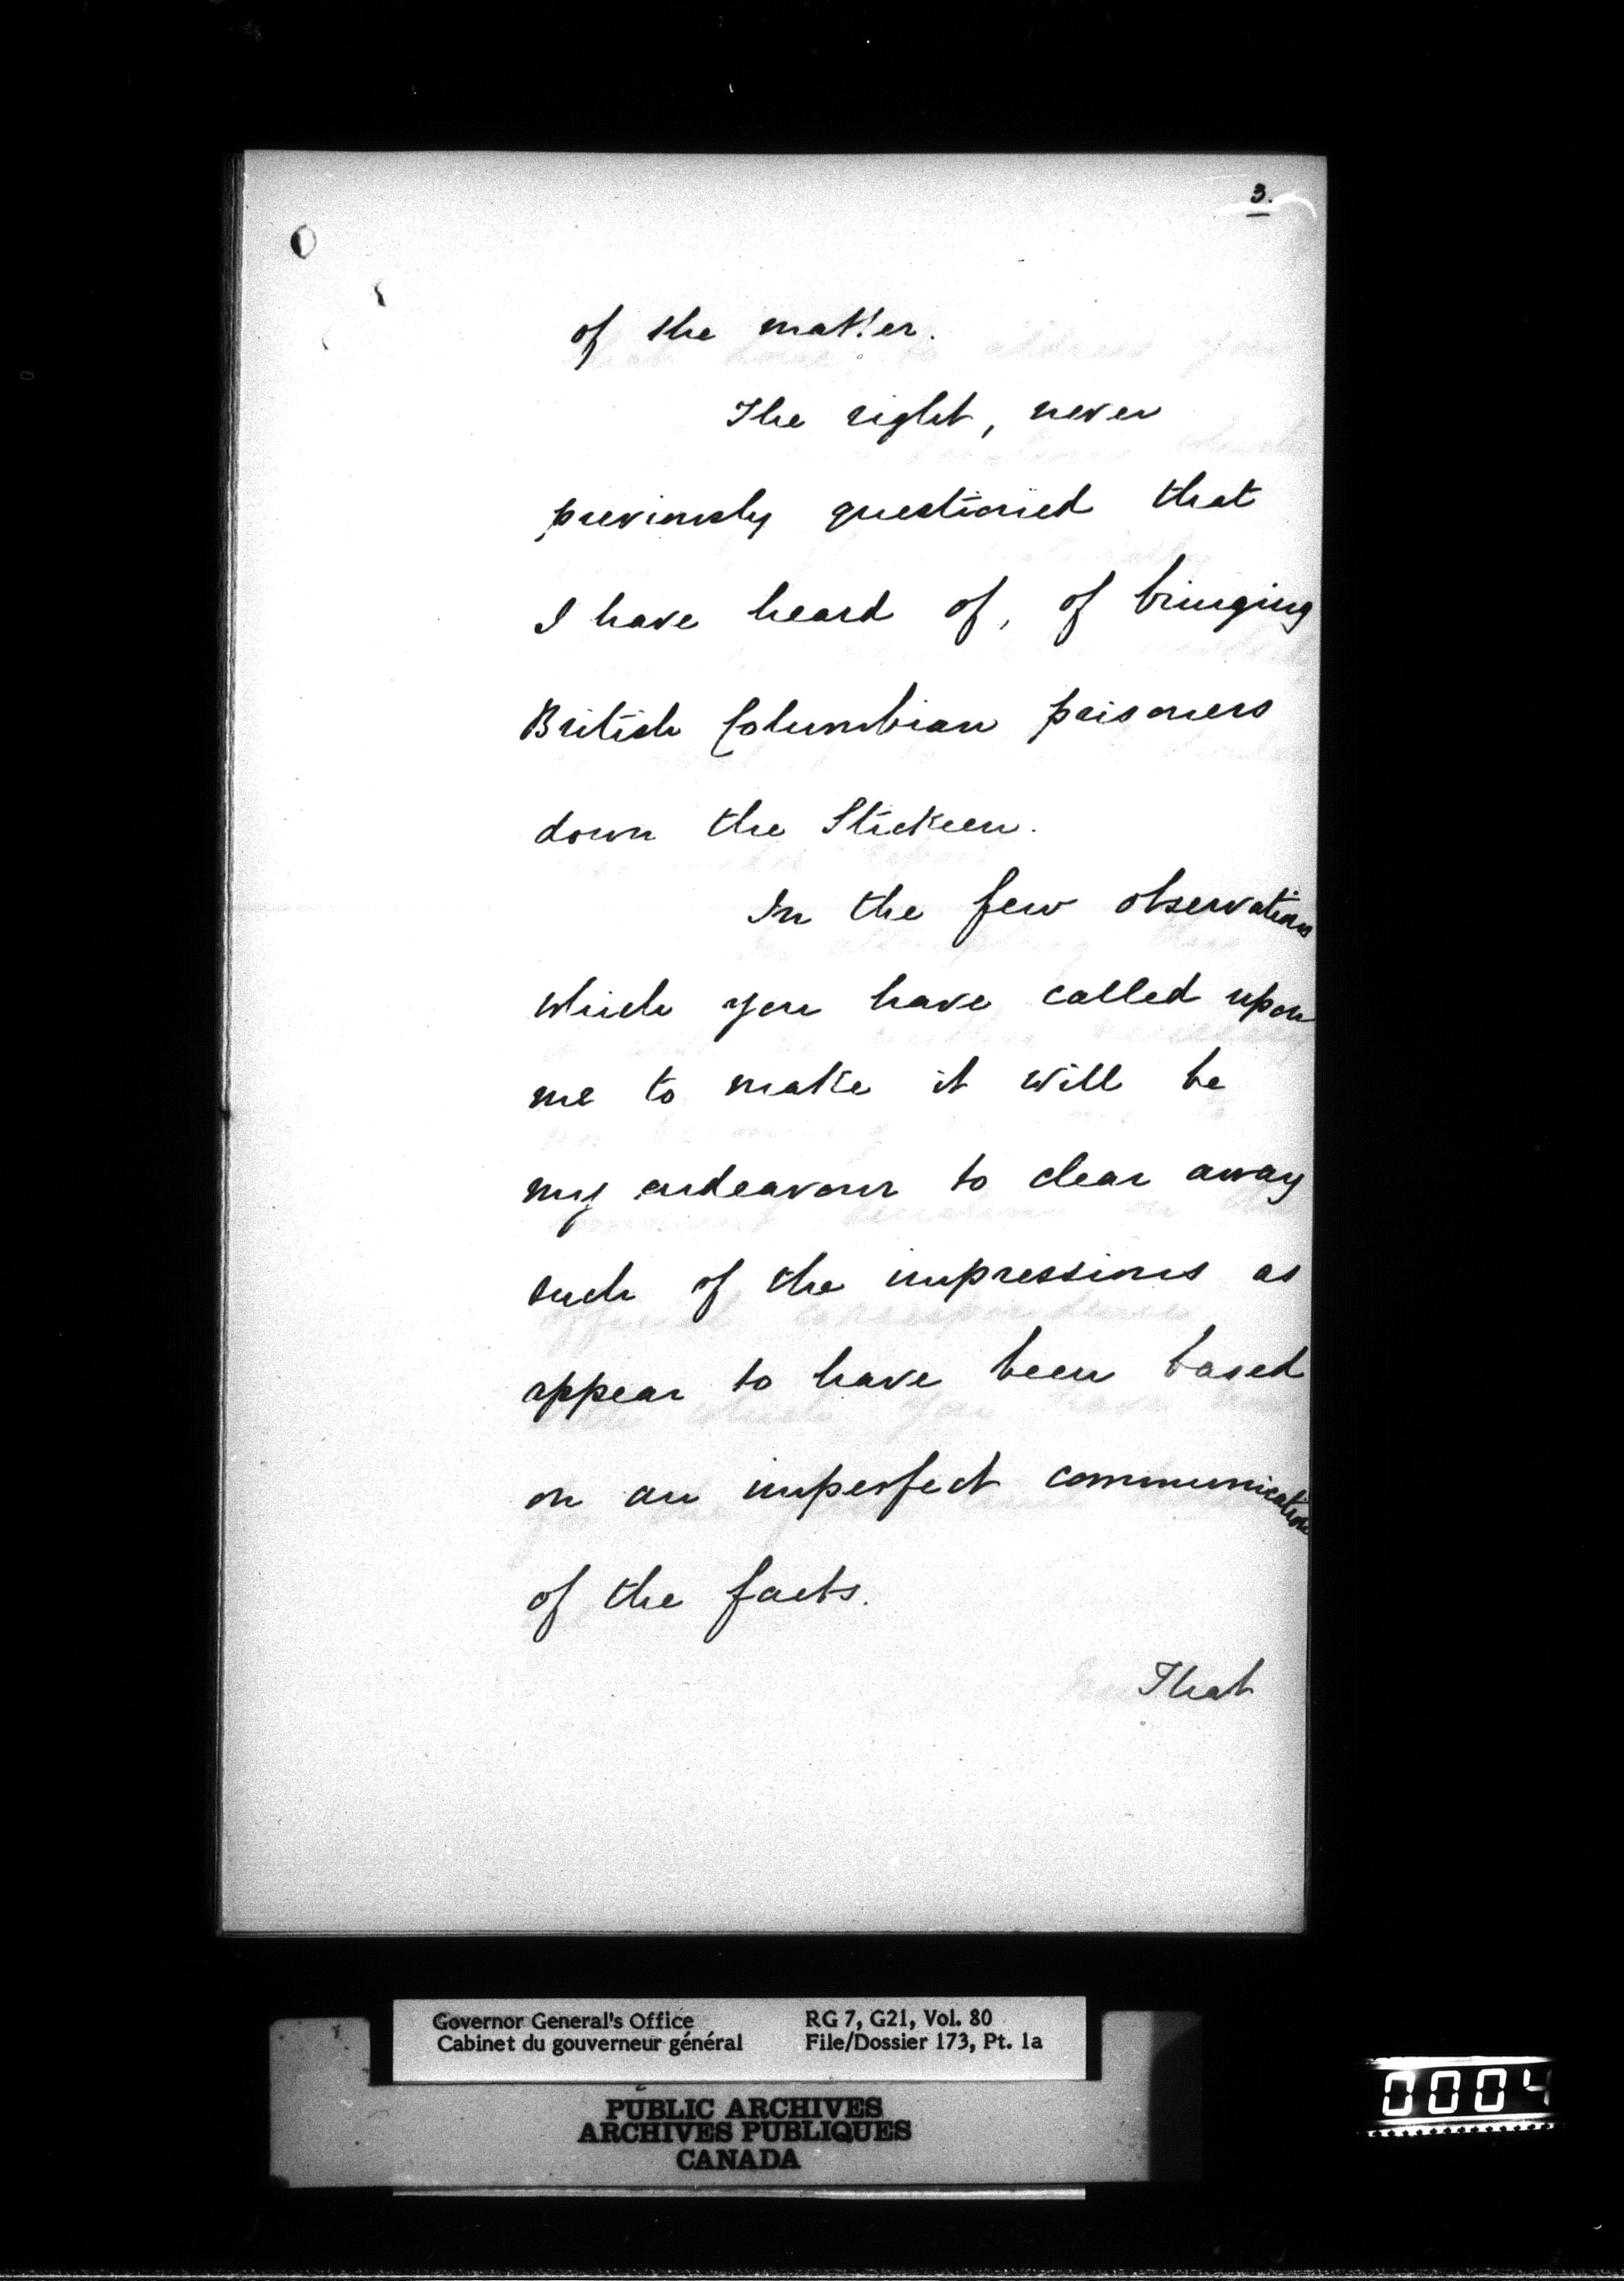 3.
of the matter.
The right, never
previously questioned that
I have heard of, of bringing
British Columbian prisoners
down the Stickeen.
In the few observations
which you have called upon
me to make it will be
my endeavour to clear away
such of the impressions as
appear to have been based
on an imperfect communication
of the facts.
That
Governor General's Office
Cabinet du gouverneur général
RG 7, G21, Vol. 80
File/Dossier 173, Pt. 1a
PUBLIC ARCHIVES
ARCHIVES PUBLIQUES
CANADA
0004